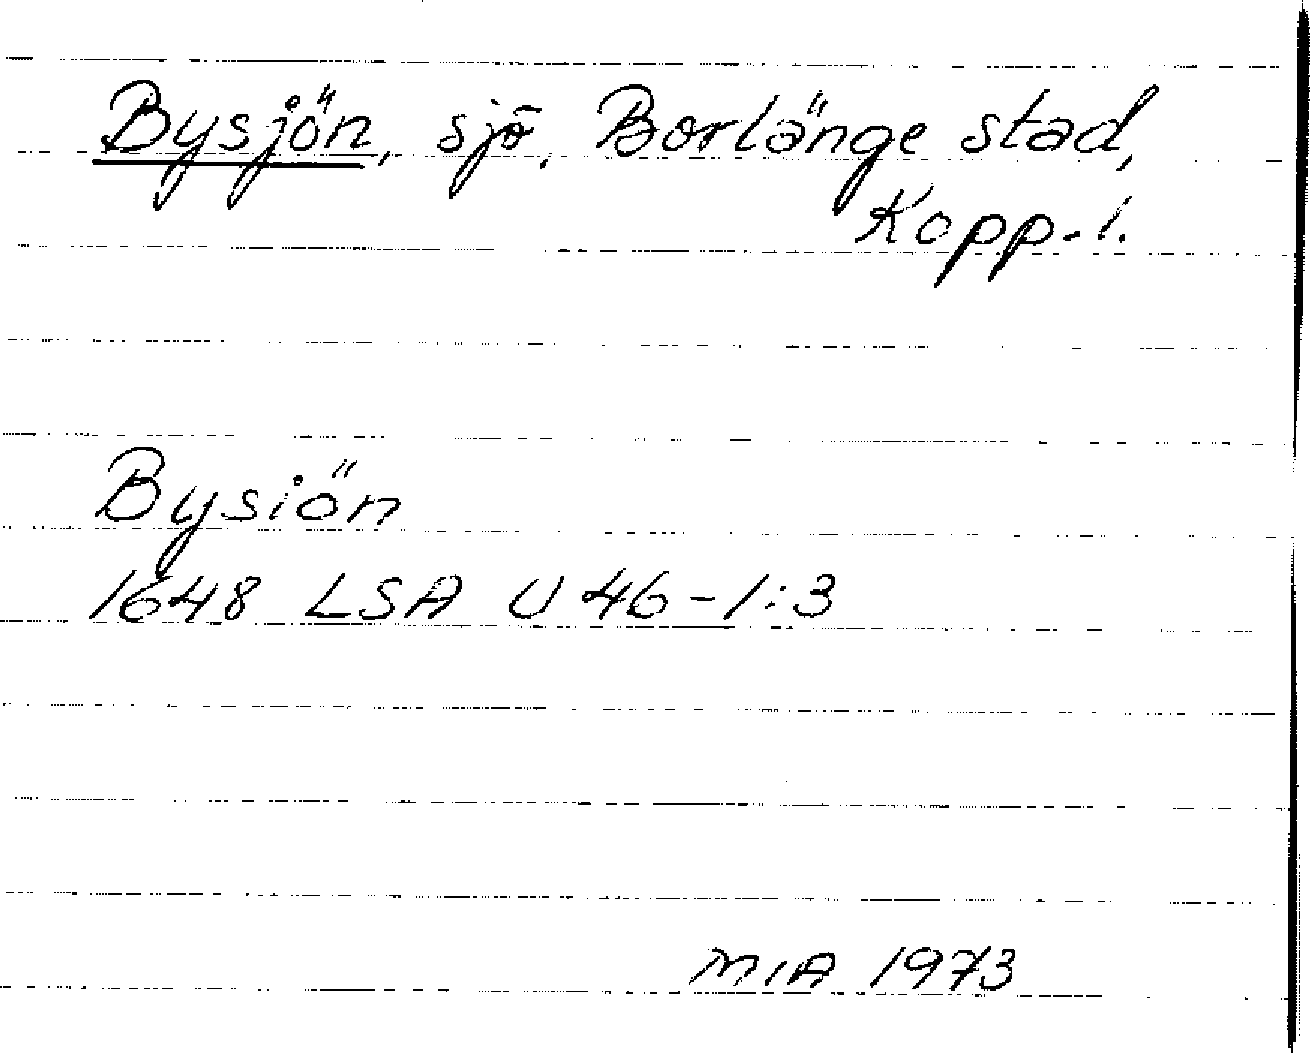 Bysjön, sjö, Borlänge stad,
Kopp. l.
Bysiön
1648 LSA U 46-1:3
MIA 1973